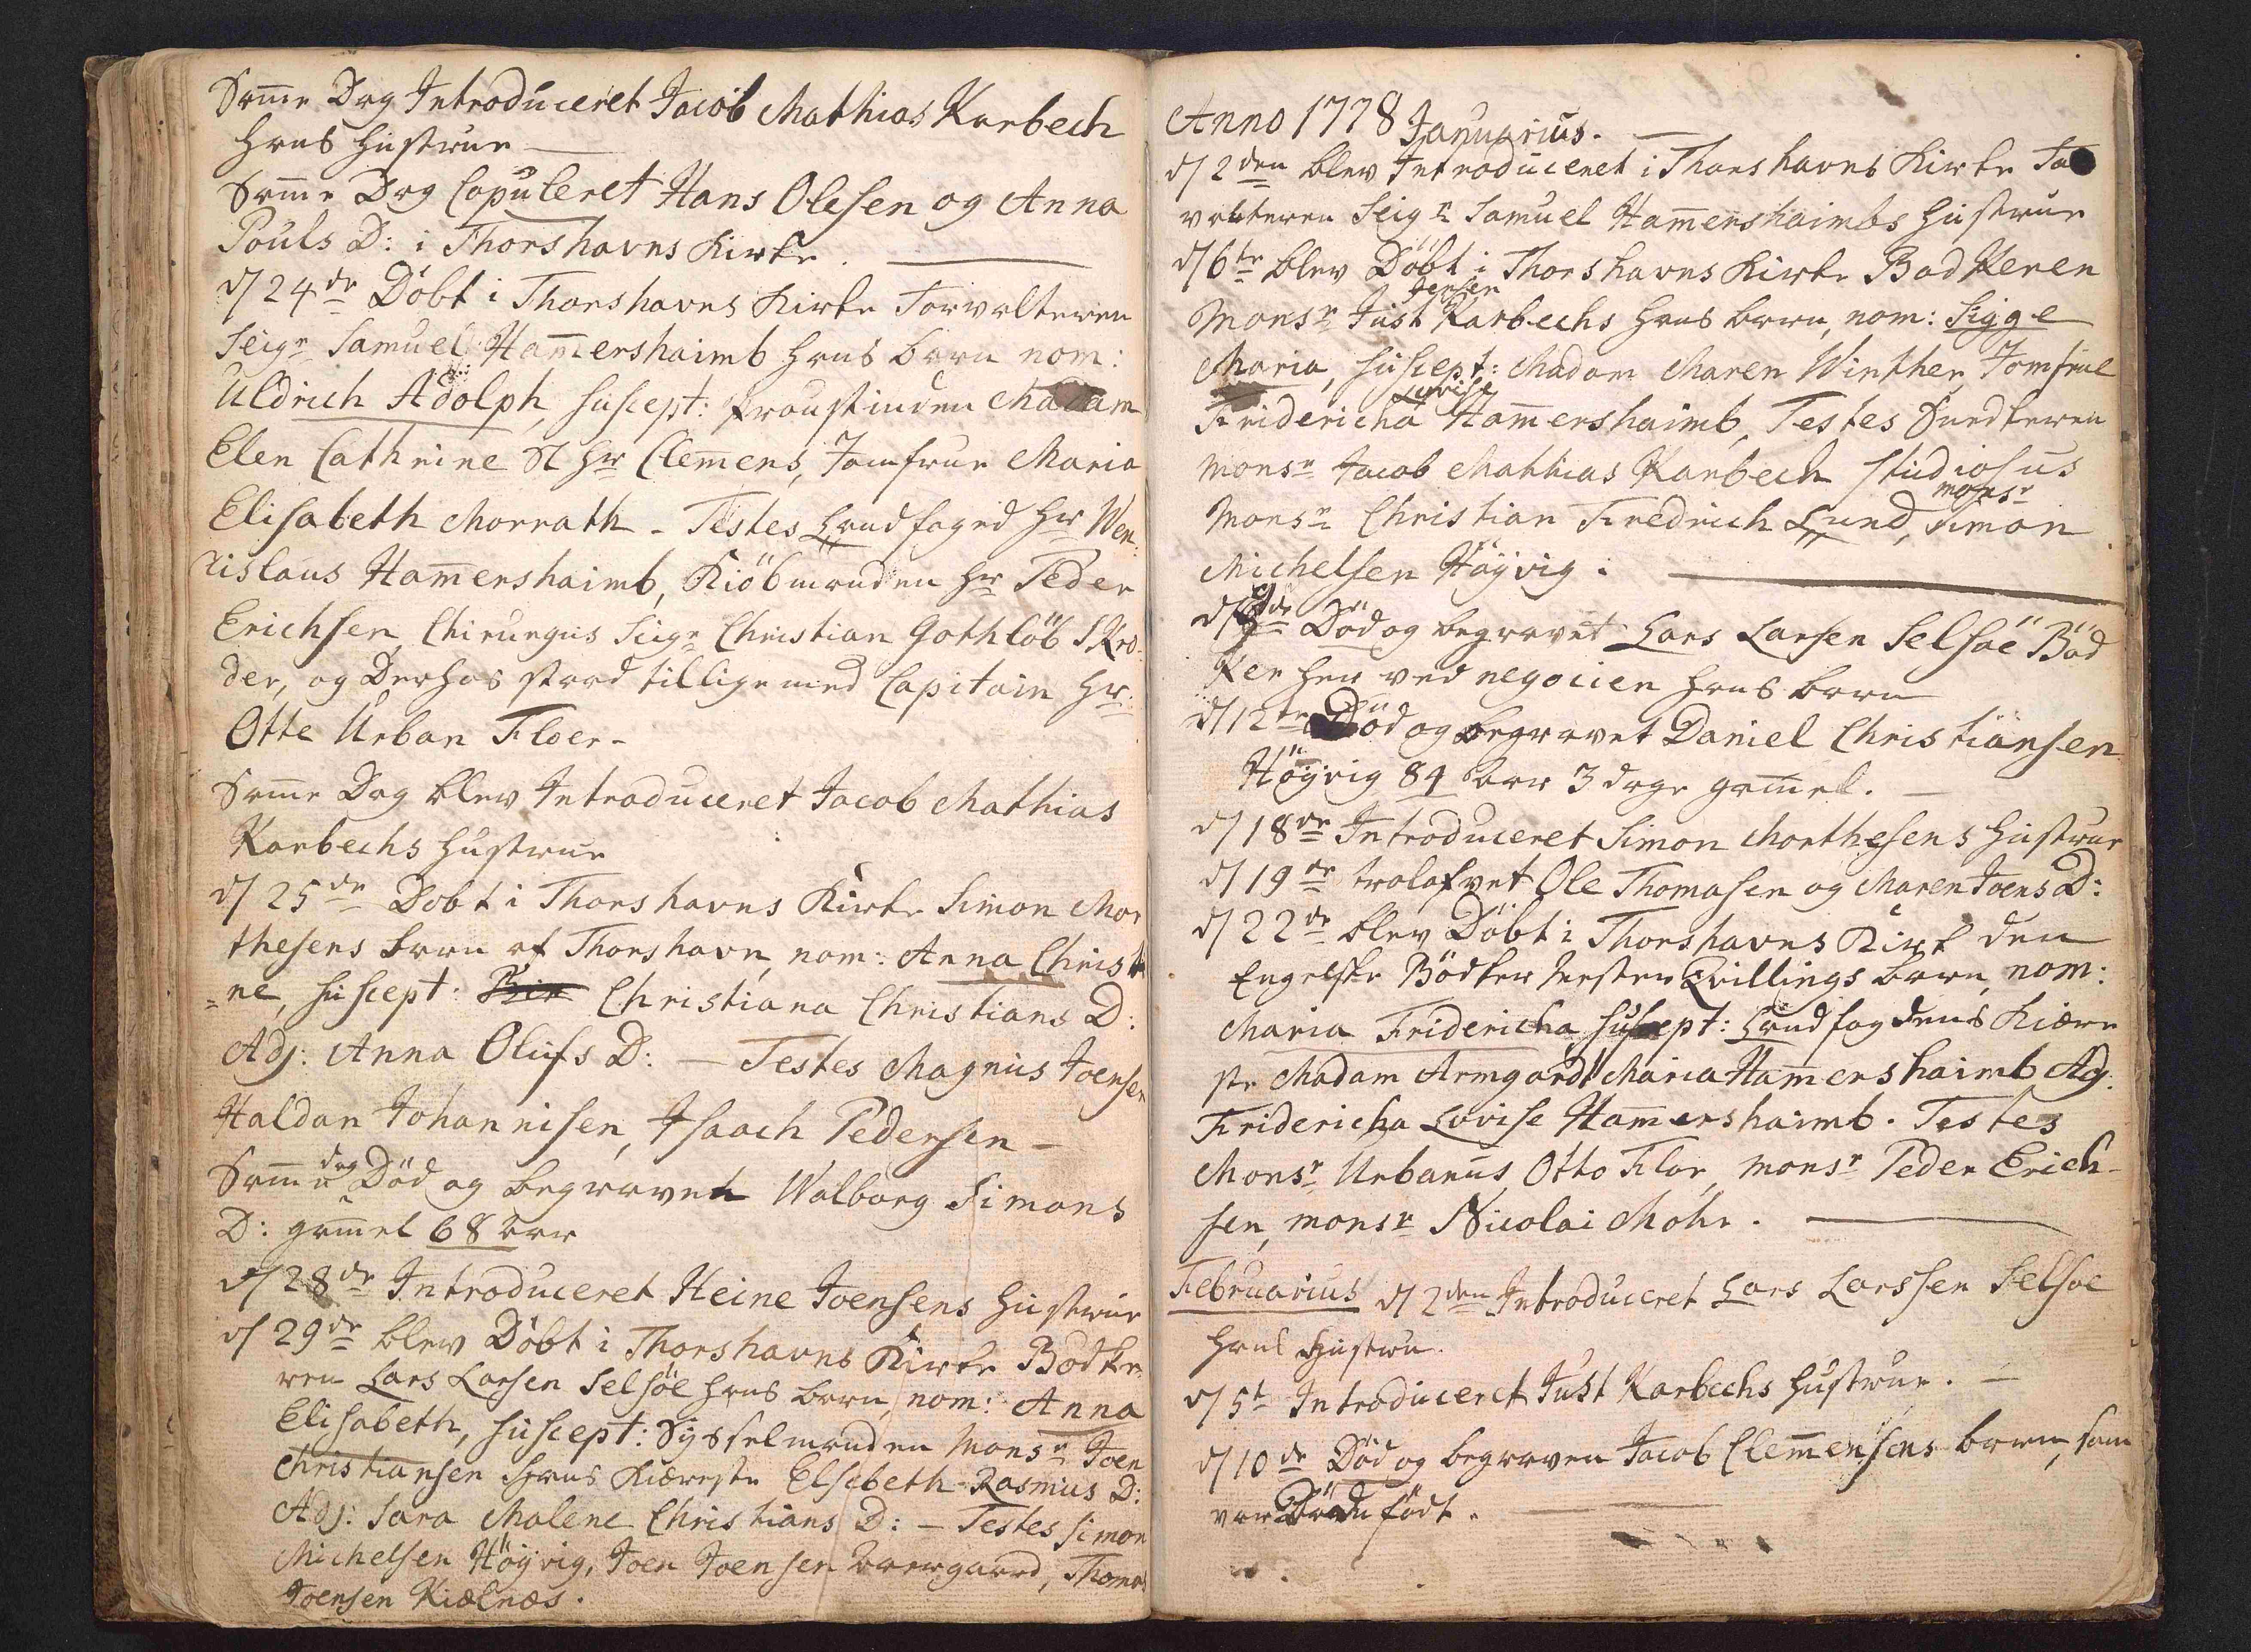 Samme Dag Introduceret Jacob Mathias Karbech
hans hustrue
Samme Dag Copuleret Hans Olesen og Anna
Pouls D: i Thorshavns Kirke.
d/ 24de Döbt i Thorshavns Kirke Forvalteren
Seigr Samuel Hammershaimb hans barn nom:
Uldrich Adolph, suscept: Proustinden Madam
Elen Cathrine Sl Hr Clemens, Jomfrue Maria
Elisabeth Morrath - Testes Landfoged Hr Wen-
zislaus Hammershaimb, Kiöbmanden Hr Peder
Erichsen, Chirurgus Seigr Christian Gothlöb
der, og Derhos stoed tillige med Capitain Hr
Otte Urban Floer-
Samme Dag blev Introduceret Jacob Mathias
Karbechs hustrue
d/ 25de Döbt i Thorshavns Kirke Simon Mor
thesens barn af Thorshavn, nom: Anna Christi
=ne, suscept: Christiana Christians D:
Adj: Anna Olufs D: - Testes Magnus Joensen
Haldan Johannisen, Isaach Pedersen -
Samme dag Död og begravet Walborg Simons
D: gammel 68 aar
d/ 28de Introduceret Heine Joensens hustrue
d/ 29de blev Döbt i Thorshavns Kirke Bödke-
ren Lars Larsen Selsöe hans barn, nom: Anna
Elisabeth, suscept: Sysselmanden Monsr Joen
Christiansen hans Kiæreste Elsebeth Rasmus D:
Adj: Sara Malene Christians D: - Testes Simon
Michelsen Höyvig, Joen Joensen, Thomas
Joensen Kiælnæs.
Anno 1778 Januarius.
d/ 2den blev Introduceret i Thorshavns Kirke
valteren Seigr Samuel Hammershaimbs hustrue
d/ 6te blev Döbt i Thorshavns Kirke Bödkeren
Monsr Just Jensen Karbechs hans barn, nom: Sigge
Maria, suscept: Madam Maren Winther, Jomfrue
Fridericha Lovise Hammershaimb, Testes
Monsr Jacob Mathias Karbech studiosus
Monsr Christian Fredrich Lund, monsr Simon
Michelsen Höyvig.
Död og begravet Lars Larsen Selsöe Böd
ker her ved negocien hans barn
d/ 12te Död og begravet Daniel Christiansen
Höyvig 84 aar 3 dage gammel.
d/ 18de Introduceret Simon Morthesens hustrue
d/ 19de trolofvet Ole Thomasen og Maren Joens D:
d/ 22de blev Döbt i Thorshavns Kirke den
Engelske Bödker Tvillings barn, nom:
Maria Fridericha, suscept: Landfogdens Kiære
ste Madam Armgardt Maria Hammershaimb Adj:
Fridericha Lovise Hammershaimb. Testes
Monsr Urbanus Otto Flor, monsr Peder Erich-
sen, monsr Nicolai Mohr.
Februarius d/ 2den Introduceret Lars Larssen Selsöe
hans hustru.
d/ 5t Introduceret Just Karbechs hustrue. -
d/ 10de Död og begraven Jacob Clemmensens barn, som
var födt.